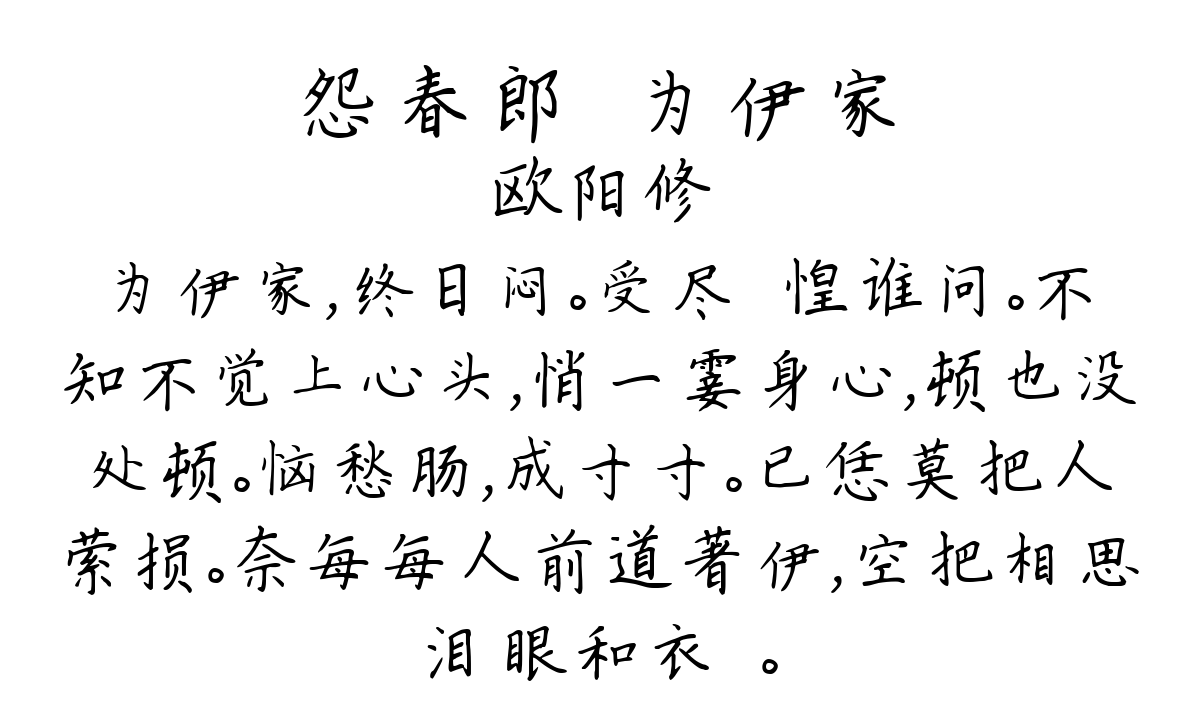 怨春郎 为伊家
欧阳修
为伊家,终日闷。受尽 惶谁问。不
知不觉上心头,悄一霎身心,顿也没
处顿。恼愁肠,成寸寸。已恁莫把人
萦损。奈每每人前道著伊,空把相思
泪眼和衣 。